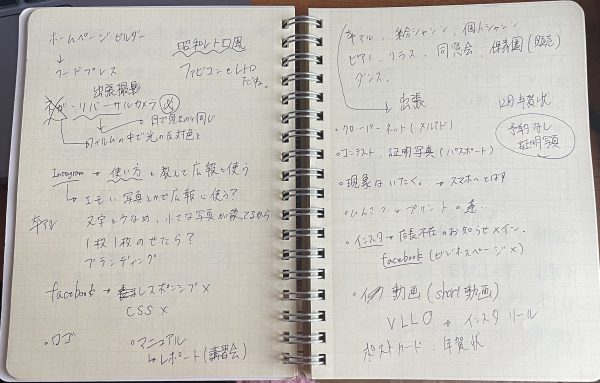 ホームページビルダー
↓
ワードプレス
昭和レトロ風
ファミコンもレトロ
だね。
出張撮影
ネガ・リバーサルカメラ
→ 目で見たのと同じ
フィルムの中で光の反対色と
Instagram → 使い方を教えて広報を使う
エモい写真とかで広報に使う?
卒アル
文字少なめ、小さな写真が載ってるから
1枚1枚のせたら?
ブランディング
facebook → レスポンシブ×
CSS×
・ロゴ
・マニュアル
レポート(講習会)
卒アル、
ピアノ、クラス、同窓会、保育園(販売)
ダンス、
出張
12月 年賀状
予約なし
証明写真
・クローバーネット(メルマガ)
・コンテスト、証明写真(パスポート)
・現像はいたく。→ スマホへとばす
プリントの差
・インスタ → 店長不在のお知らせメイン、
facebook(ビジネスページ×)
動画(short動画)
VLLO → インスタリール
ポストカード、年賀状